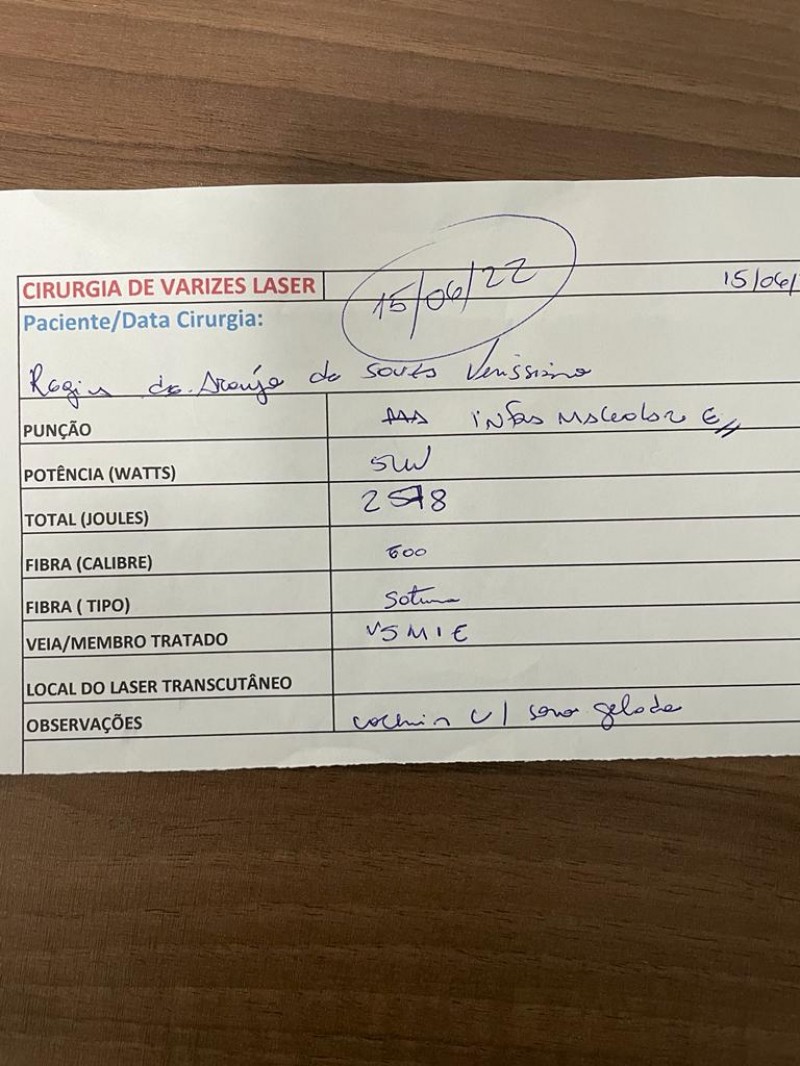 CIRURGIA DE VARIZES LASER 15/06/22 15/06/
Paciente/Data Cirurgia:
de Araújo de Souza
PUNÇÃO E
POTÊNCIA (WATTS) 5W
TOTAL (JOULES) 2578
FIBRA (CALIBRE) 600
FIBRA ( TIPO)
VEIA/MEMBRO TRATADO VSMIE
LOCAL DO LASER TRANSCUTÂNEO
OBSERVAÇÕES coxim c/ soro gelado